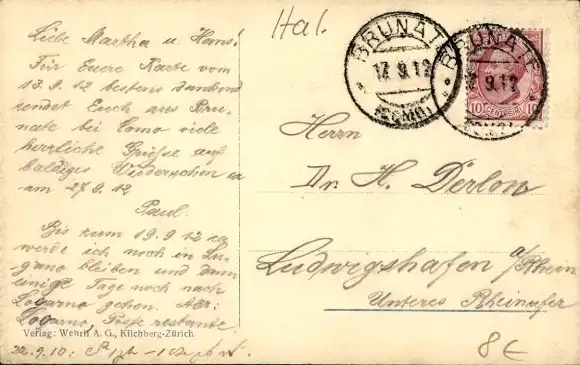 Hal.
Liebe Martha u. Hans!
Für Euere Karte vom
13.9.12 bestens dankend
sendet Euch aus Bru-
nate bei Como viele
herzliche Grüsse auf
baldiges Wiedersehen
am 27.9.12
Paul.
Bis zum 19.9.12
werde ich noch in Lu-
gano bleiben und dann
einige Tage noch nach
Locarno gehen. Adr:
Locarno, Poste restante.
Verlag: Wehrli A. G., Kilchberg-Zürich.
BRUNATE
17.9.12
(COMO)
BRUNATE
9.12
10 CENTESIMI 10
Herrn
Dr. H. Derlon
Ludwigshafen a/Rhein
Unteres Rheinufer
8€